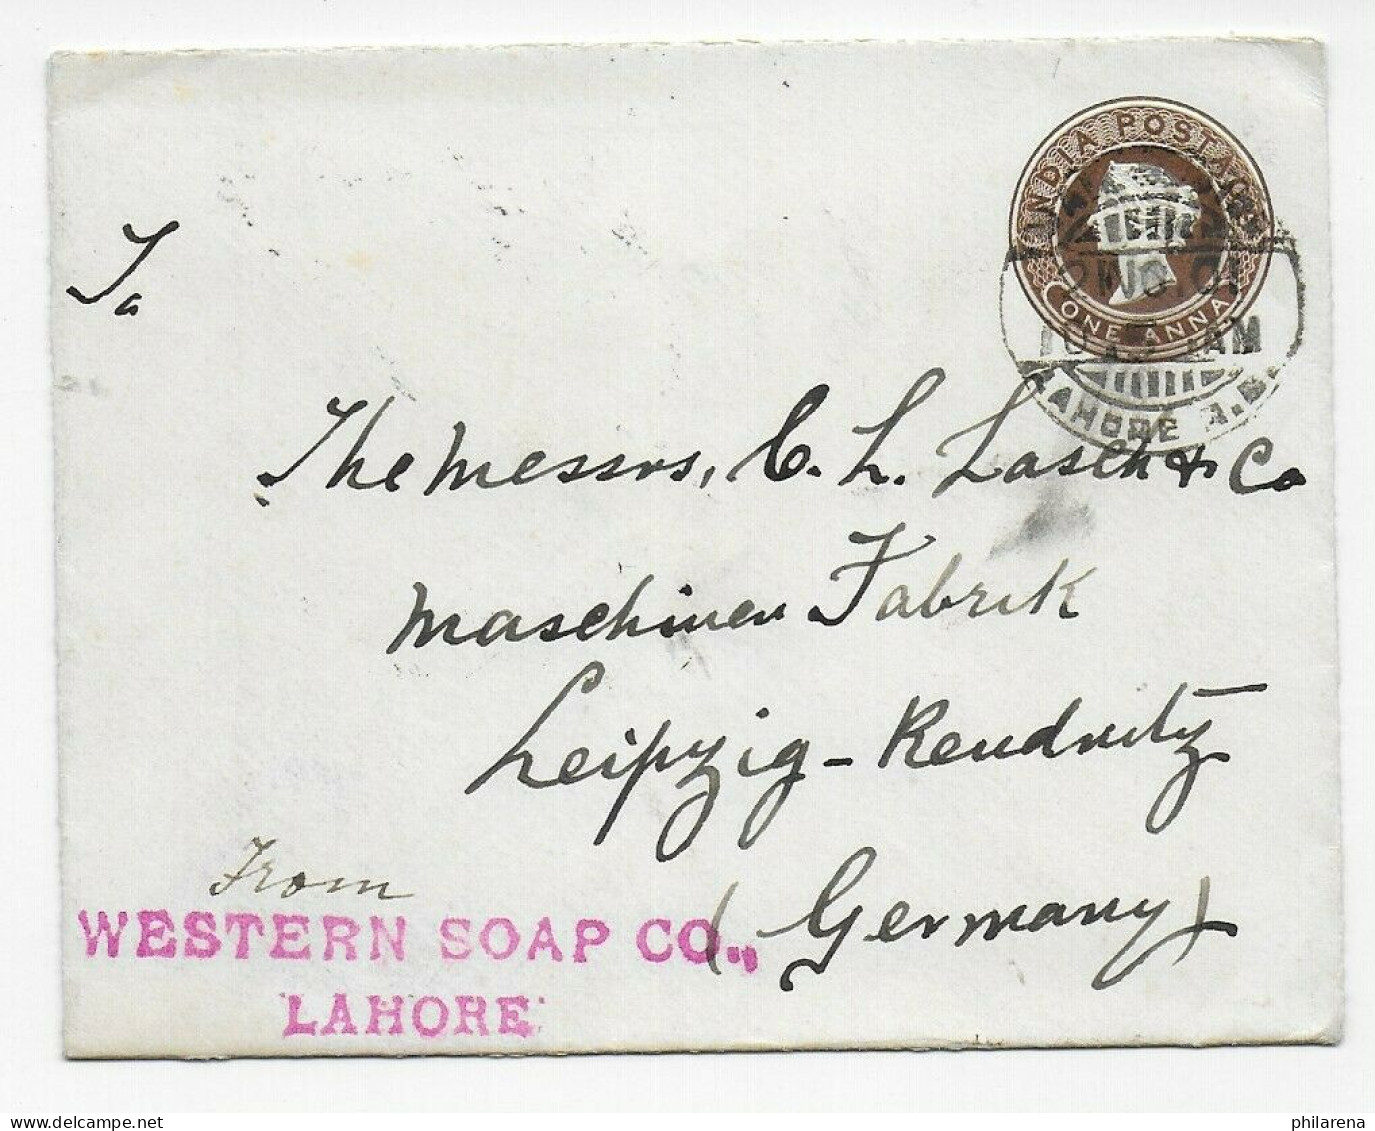 INDIA POSTAGE
ONE ANNA
LAHORE
To
The Messrs, C. L. Lasch & Co
Maschinen Fabrik
Leipzig - Reudnitz
(Germany)
From
WESTERN SOAP CO.,
LAHORE
philarena